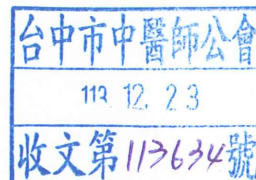 台中市中醫師公會
113.12.23
收文第113634號